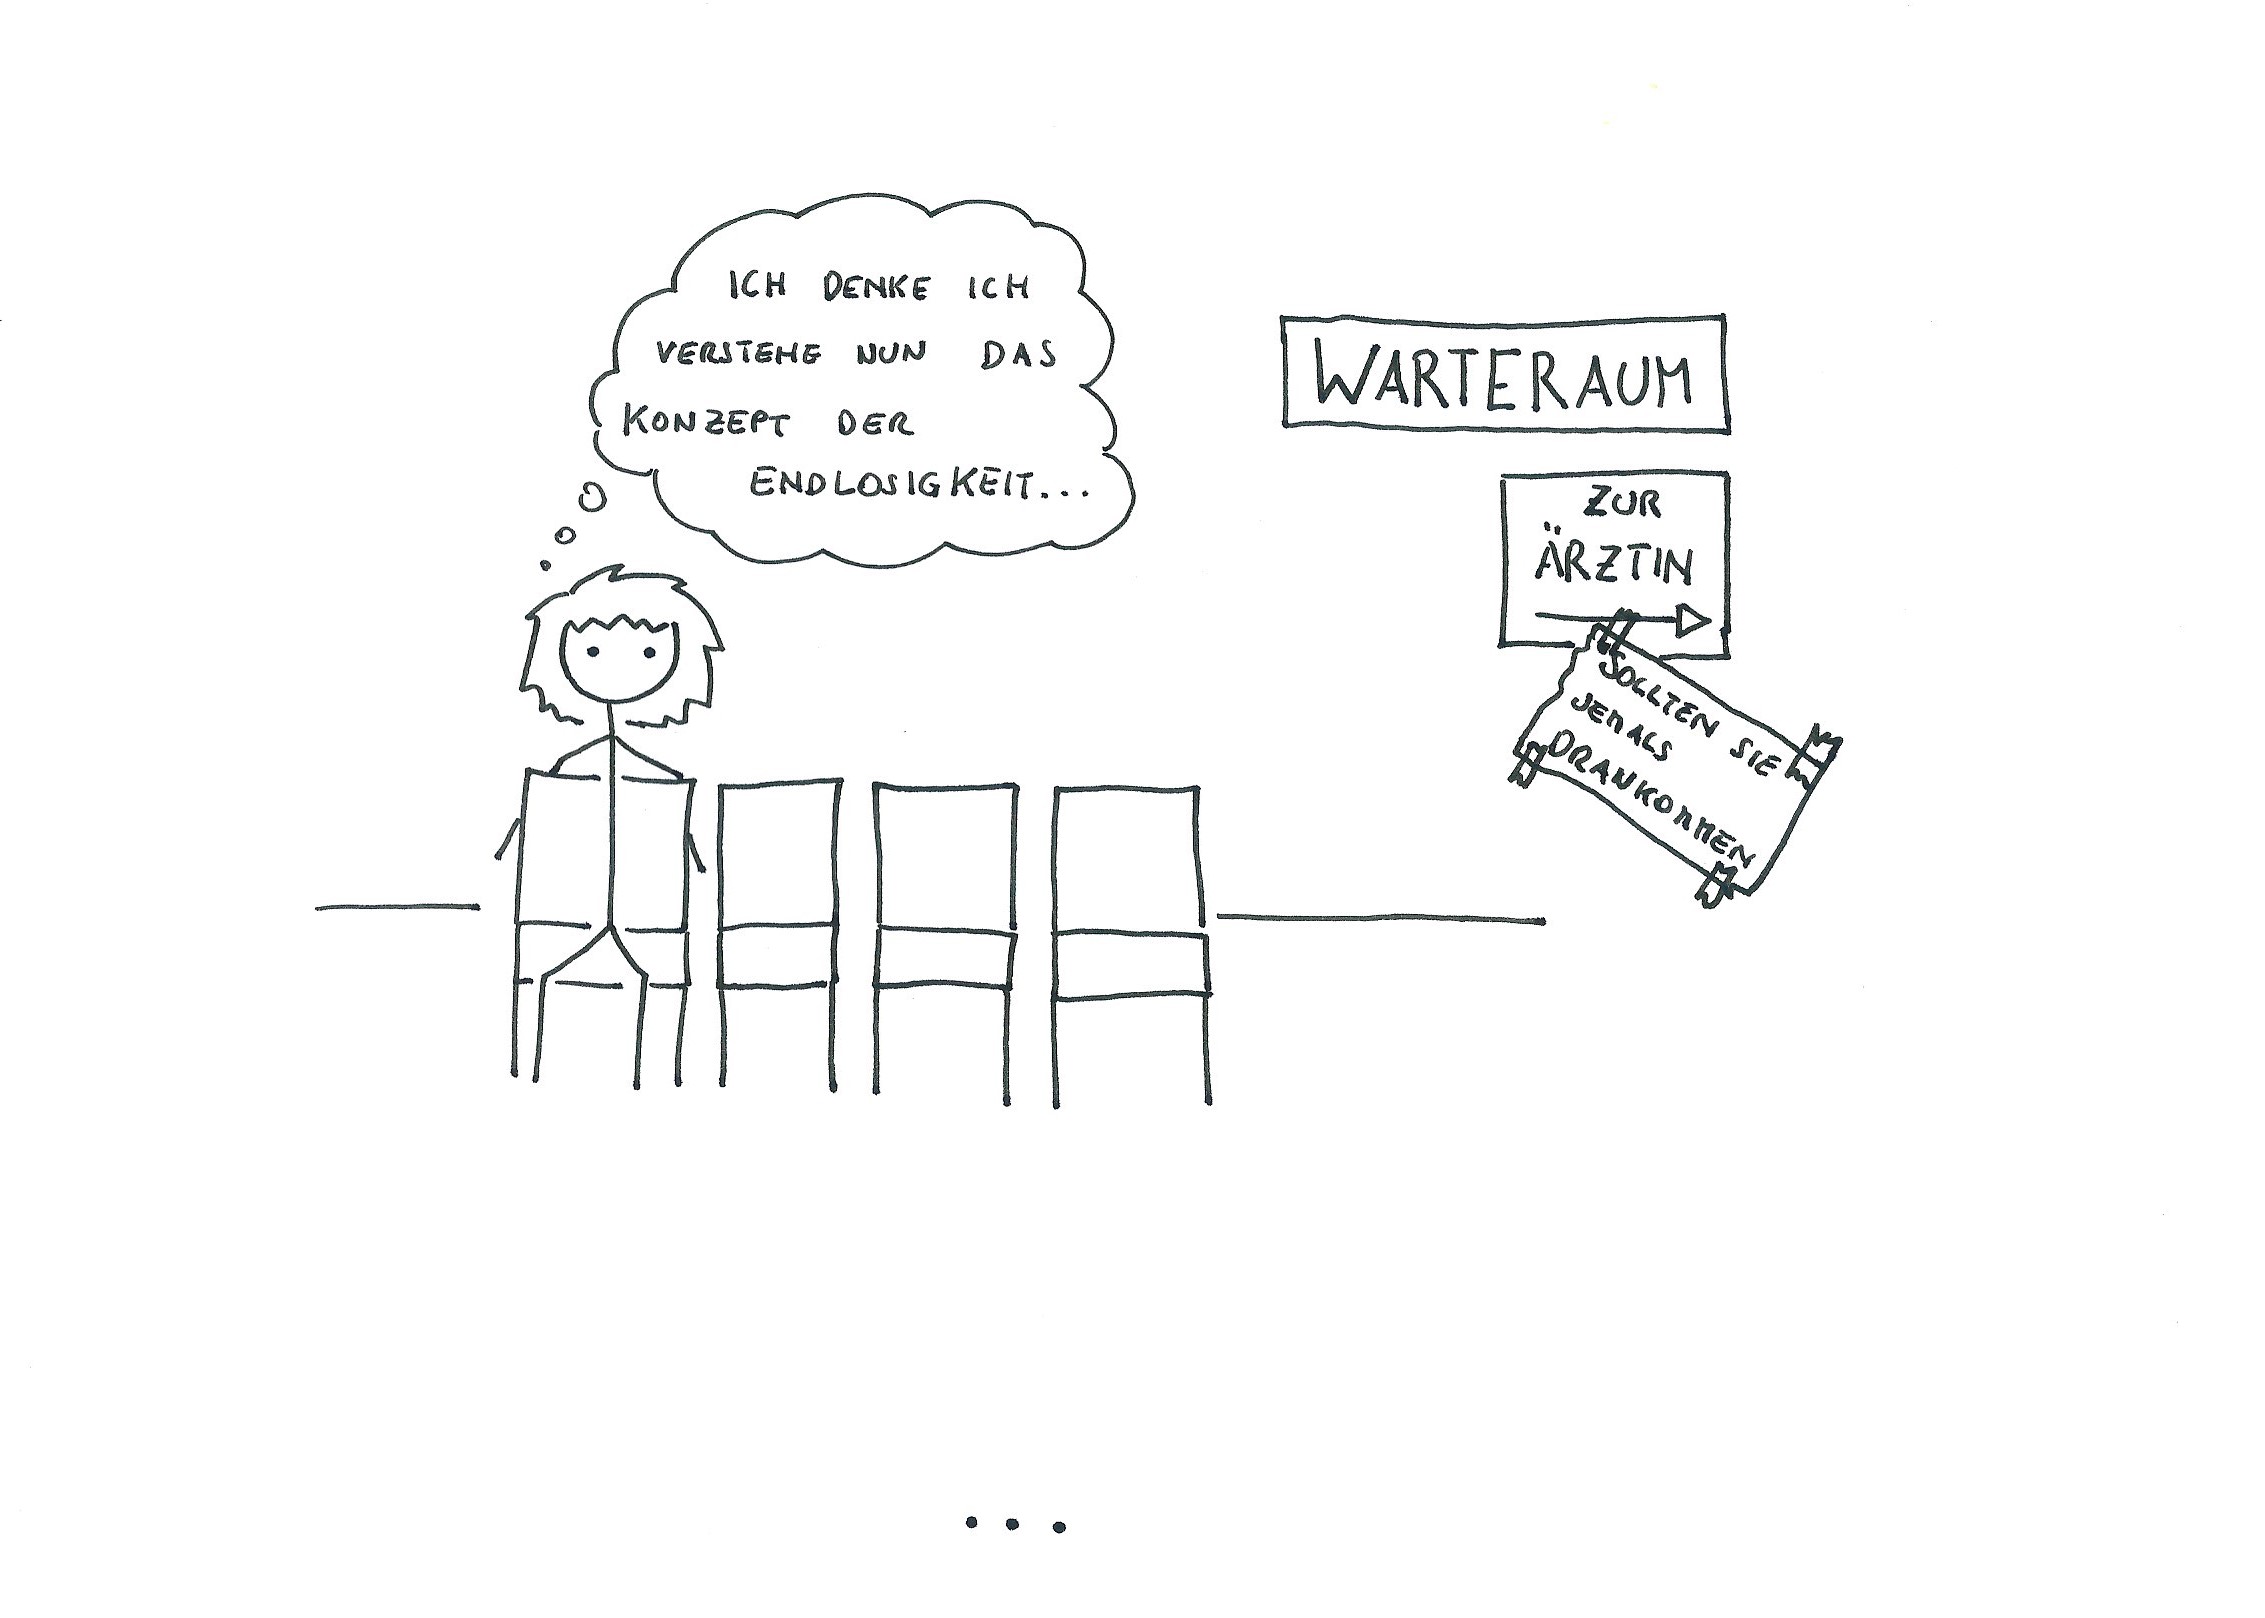 ICH DENKE ICH
VERSTEHE NUN DAS
KONZEPT DER
ENDLOSIGKEIT...
WARTERAUM
ZUR
ÄRZTIN
SOLLTEN SIE
JEMALS
DRANKOMMEN
...